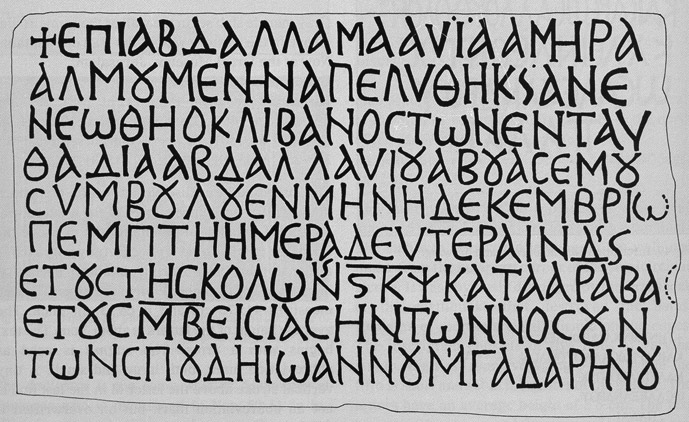 ✝ΕΠΙΑΒΔΑΛΛΑΜΑΑΥΪΑΑΜΗΡΑ
ΑΛΜȢΜΕΝΗΝΑΠΕΛΥΘΗΚSΑΝΕ
ΝΕΩΘΗΟΚΛΙΒΑΝΟCΤΩΝΕΝΤΑΥ
ΘΑΔΙΑΑΒΔΑΛΛΑΥΙȢΑΒȢΑCΕΜȢ
CΥΜΒȢΛȢΕΝΜΗΝΗΔΕΚΕΜΒΡΙΩ
ΠΕΜΠΤΗΗΜΕΡΑΔΕΥΤΕΡΑΙΝΔSS
ΕΤȢCΤΗCΚΟΛΩΝSϚΚΨΚΑΤΑΑΡΑΒΑ
ΕΤȢCΜΒΕΙCΙΑCΗΝΤΩΝΝΟCȢΝ
ΤΩΝCΠȢΔΗΙΩΑΝΝȢΜΓΑΔΑΡΗΝȢ